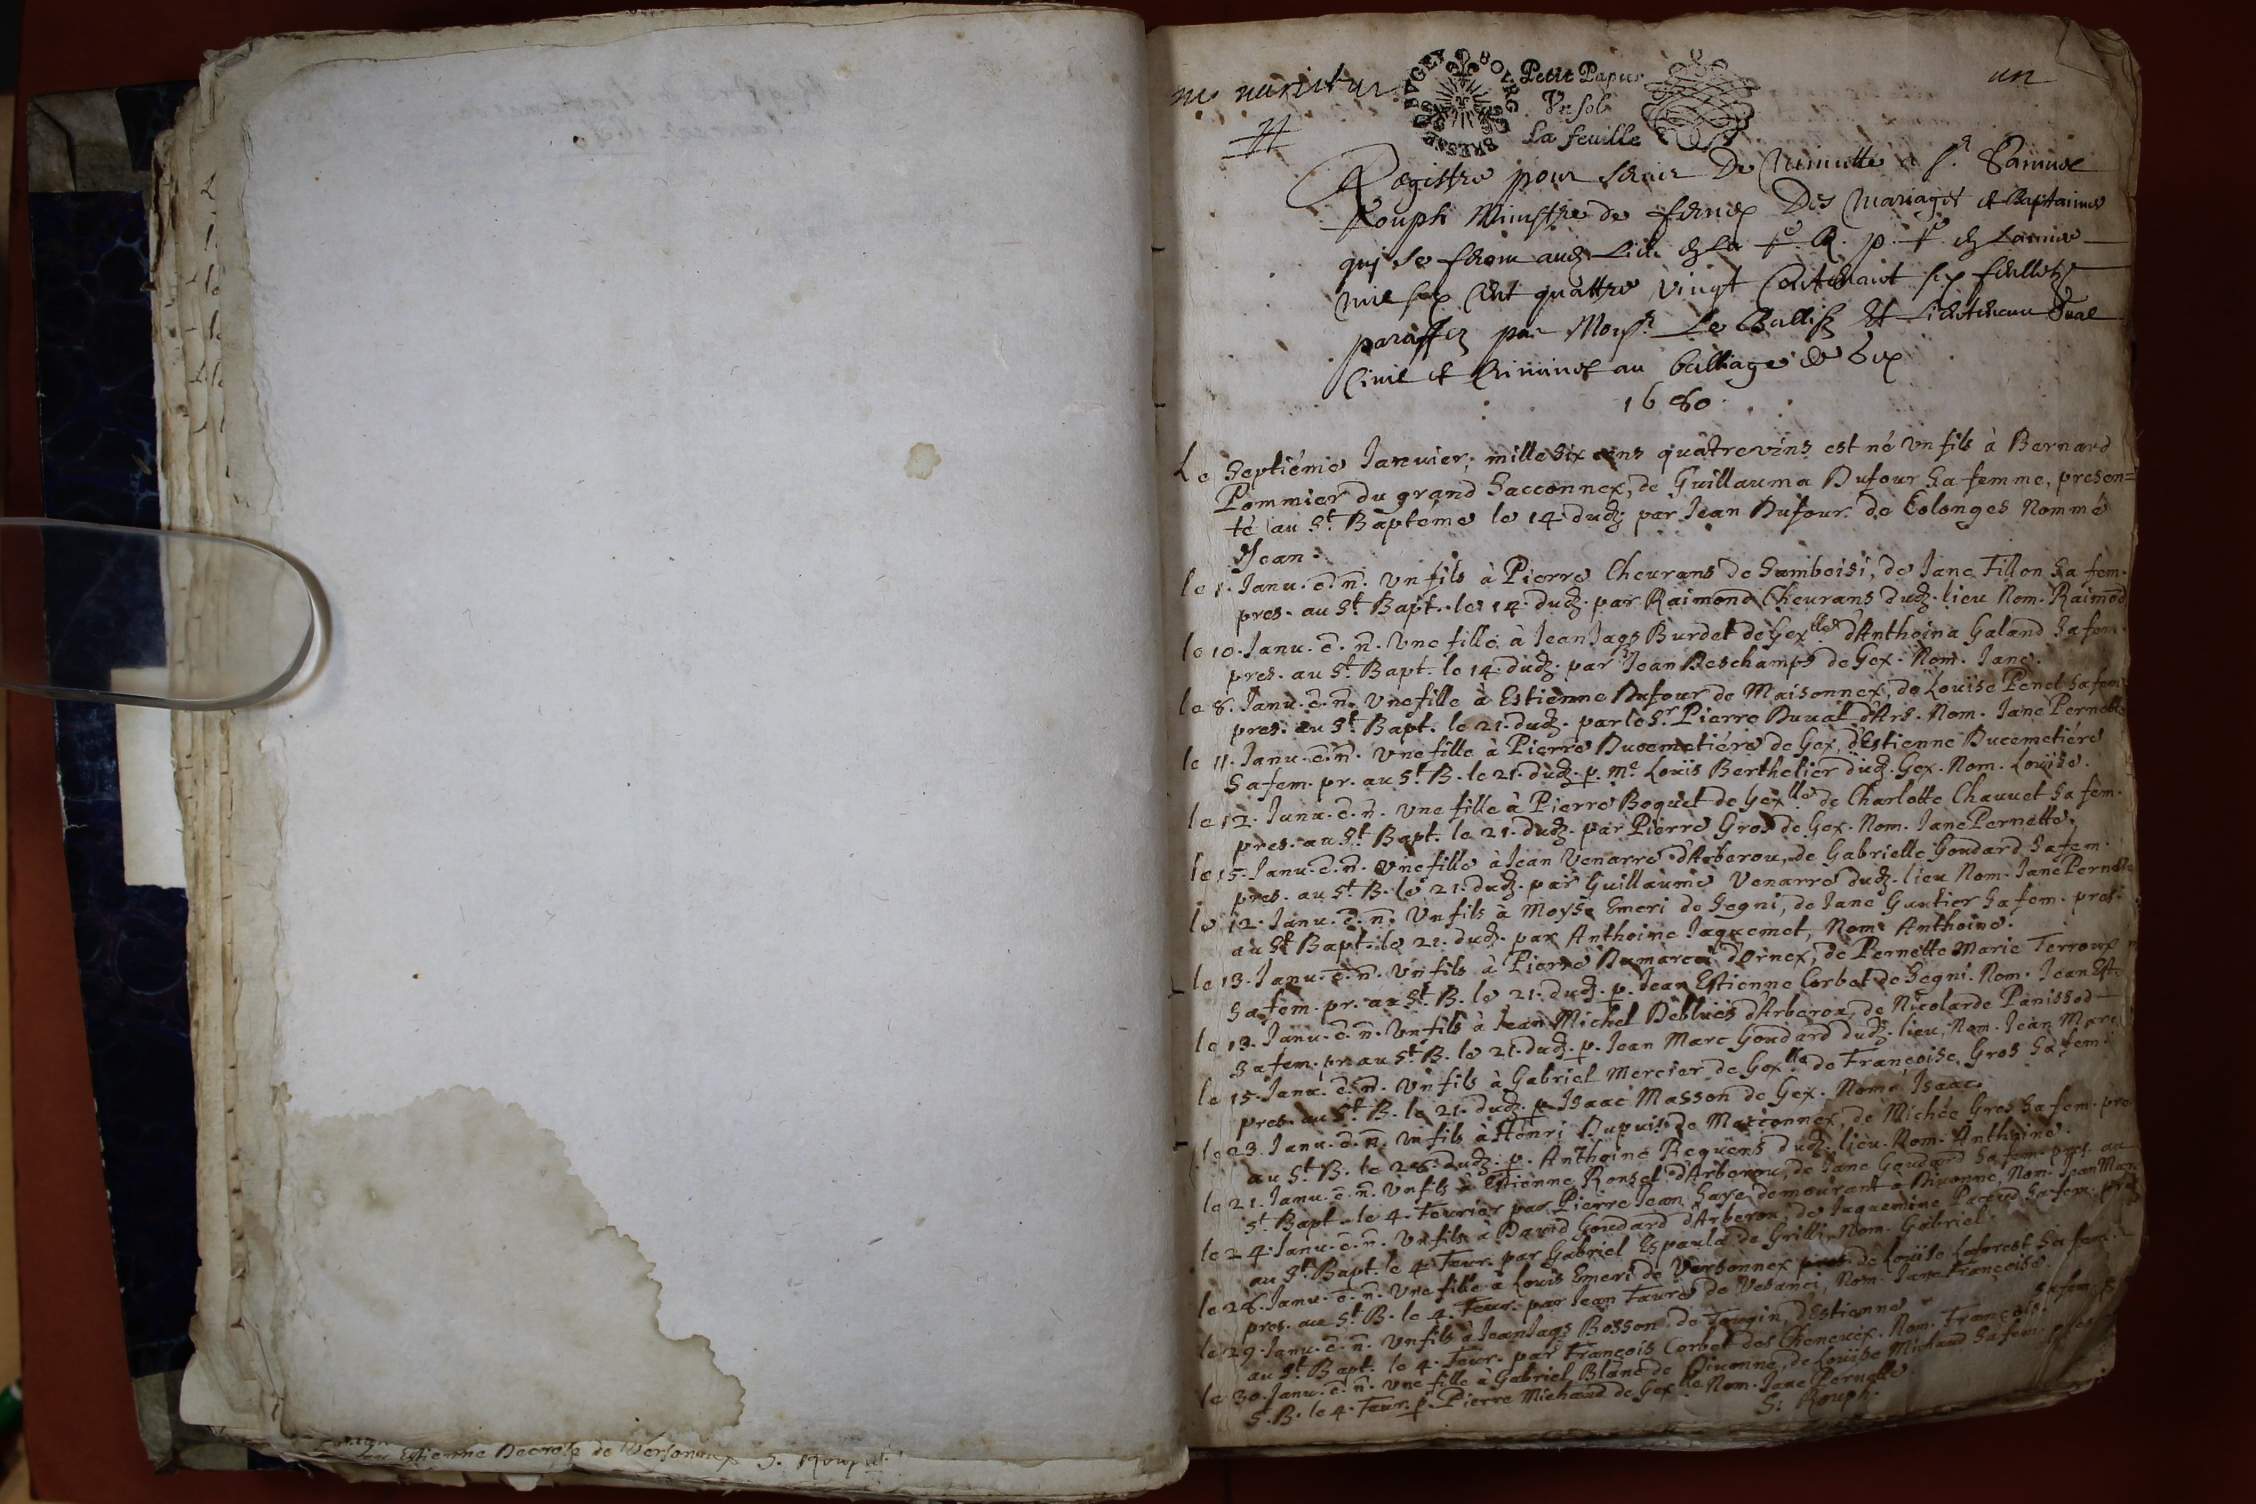 ne varietur
un
BOURG BRESSE BUGEY
Petit Papier
Un sol
La feuille
Registre pour servir De Minutte a Sr. Samuel
Rouph Ministre de fernex Des Mariages et Baptaimes
qui se feront aud. Lieu de la R. p. R. de Lannée
mil six cent quattre vingt Contenant six feulletz
paraffez par Monsr. Le Ballif Et Lieutenant Gnal
Civil et Criminel au balliage de Gex
1680
Le Septiéme Januier, mille six cens quàtrevins est né vn fils à Bernard
Pommier du grand Sacconnex, de Guillauma Dufour Sa femme, presen=
té au St. Baptéme le 14. dud. par Jean Dufour de Colonges Nommé
Jean.
le 1. Janu. e. n. vn fils à Pierre Cheurans de Samboisi, de Jane Fillon Sa fem.
pres. au St. Bapt. le 14. dud. par Raimond Cheurans dud. lieu Nom. Raimōd
le 10. Janu. e. n. vne fille à Jean Jaqs Burdet de Gex lle d'Anthoina Galand Sa fem.
pres. au St. Bapt. le 14. dud. par Jean Deschamps de Gex. Nom. Jane.
le 8. Janu. e. n. vne fille à Estienne Dufour de Maisonnex, de Louise Penet Sa fem.
pres. au St. Bapt. le 21. dud. par le Sr. Pierre Duual d'Ars. Nom. Jane Pernette
le 11. Janu. e. n. vne fille à Pierre Ducemetiére de Gex, d'Estienne Ducemetiére
Sa fem. pr. au St. B. le 21. dud. p. Me. Louïs Berthelier dud. Gex. Nom. Louïse.
le 12. Janu. e. n. vne fille à Pierre Boquet de Gex lle de Charlotte Chauuet Sa fem.
pres. au St. Bapt. le 21. dud. par Pierre Gros de Gex. Nom. Jane Pernette.
le 15. Janu. e. n. vne fille à Jean Venarre d'Arberou, de Gabrielle Goudard Sa fem.
pres. au St. B. le 21. dud. par Guillaume Venarre dud. lieu Nom. Jane Pernette
le 12. Janu. e. n. vn fils à Moyse Emeri de Segni, de Jane Guntier Sa fem. pres.
au St. Bapt. le 21. dud. par Anthoine Jaquemet, Nom. Anthoine.
le 13. Janu. e. n. vn fils à Pierre Dumarcei d'Ornex, de Pernette Marie Terroux
Sa fem. pr. au St. B. le 21. dud. p. Jean Estienne Corbet de Segni. Nom. Jean Est.
le 13. Janu. e. n. vn fils à Jean Michel Deblues d'Arberou, de Nicolarde Panissod
Sa fem. pr. au St. B. le 21. dud. p. Jean Marc Goudard dud. lieu, Nom. Jean Marc
le 15. Janu. e. n. vn fils à Gabriel Mercier de Gex lle de Francoise Gros Sa fem.
pres. au St. B. le 21. dud. p. Isaac Masson de Gex. Nomé Isaac.
le 23. Janu. e. n. vn fils à Henri Dupuis de Macconnex, de Michée Gros Sa fem. pre.
au St. B. le 28. dud. p. Anthoine Requens dud. lieu. Nom. Anthoine.
le 21. Janu. e. n. vn fils à Estienne Ronset d'Arberou, de Jane Goudard Sa fem. pres. au
St. Bapt. le 4. Feurier par Pierre Jean Saye demourant a Diuonne, Nom. Jean Mar.
le 24. Janu. e. n. vn fils à Dauid Goudard d'Arberou, de Jaquemine Paceud Sa fem. pres
au St. Bapt. le 4. Feur. par Gabriel Espaula de Grilli, Nom. Gabriel.
le 26. Janu. e. n. vne fille à Louis Emeri de Versonnex de Louïse Laforest Sa fem.
pres. au St. B. le 4. Feur. par Jean Faure de Vesanci, Nom. Jane Francoise.
le 29. Janu. e. n. vn fils à Jean Jaqs Bosson de Tougin, d'Estienne Sa fem.
au St. Bapt. le 4. Feur. par Francois Corbet des Cheneuex. Nom. Francois.
le 30. Janu. e. n. vne fille à Gabriel Blanc de Diuonne, de Louïse Michaud Sa fem. pres
St. B. le 4. Feur. p. Pierre Michaud de Gex lle Nom. Jane Pernette.
S. Rouph.
Estienne Decrose de Versonnex S. Rouph